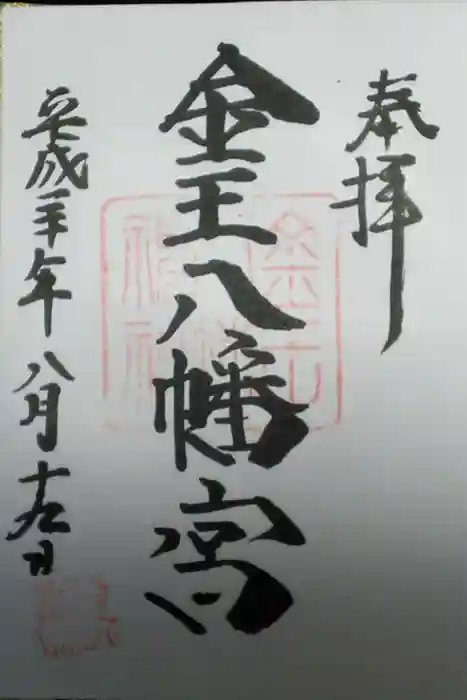 奉拝
金王八幡宮
平成三十年八月十九日